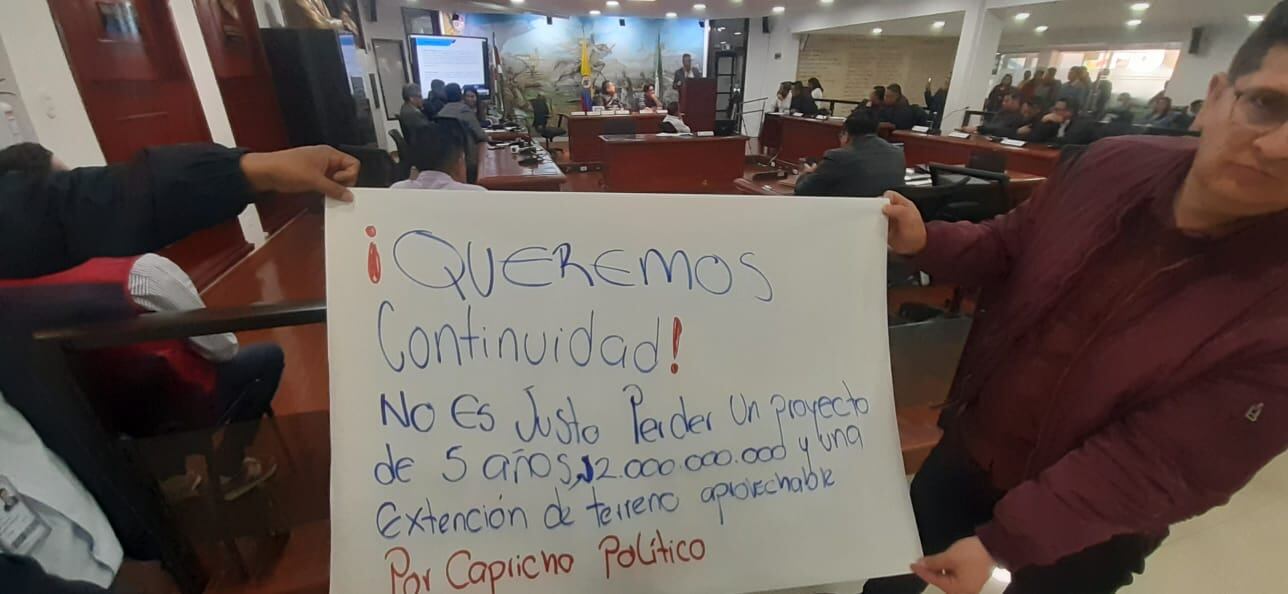 ¡QUEREMOS
Continuidad!
No Es Justo Perder Un proyecto
de 5 años, $2.000.000.000 y una
Extención de terreno aprovechable
Por Capricho Político